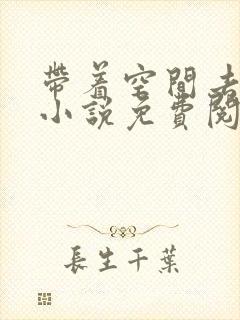 帶着空間去
小說免費閱
長生千葉